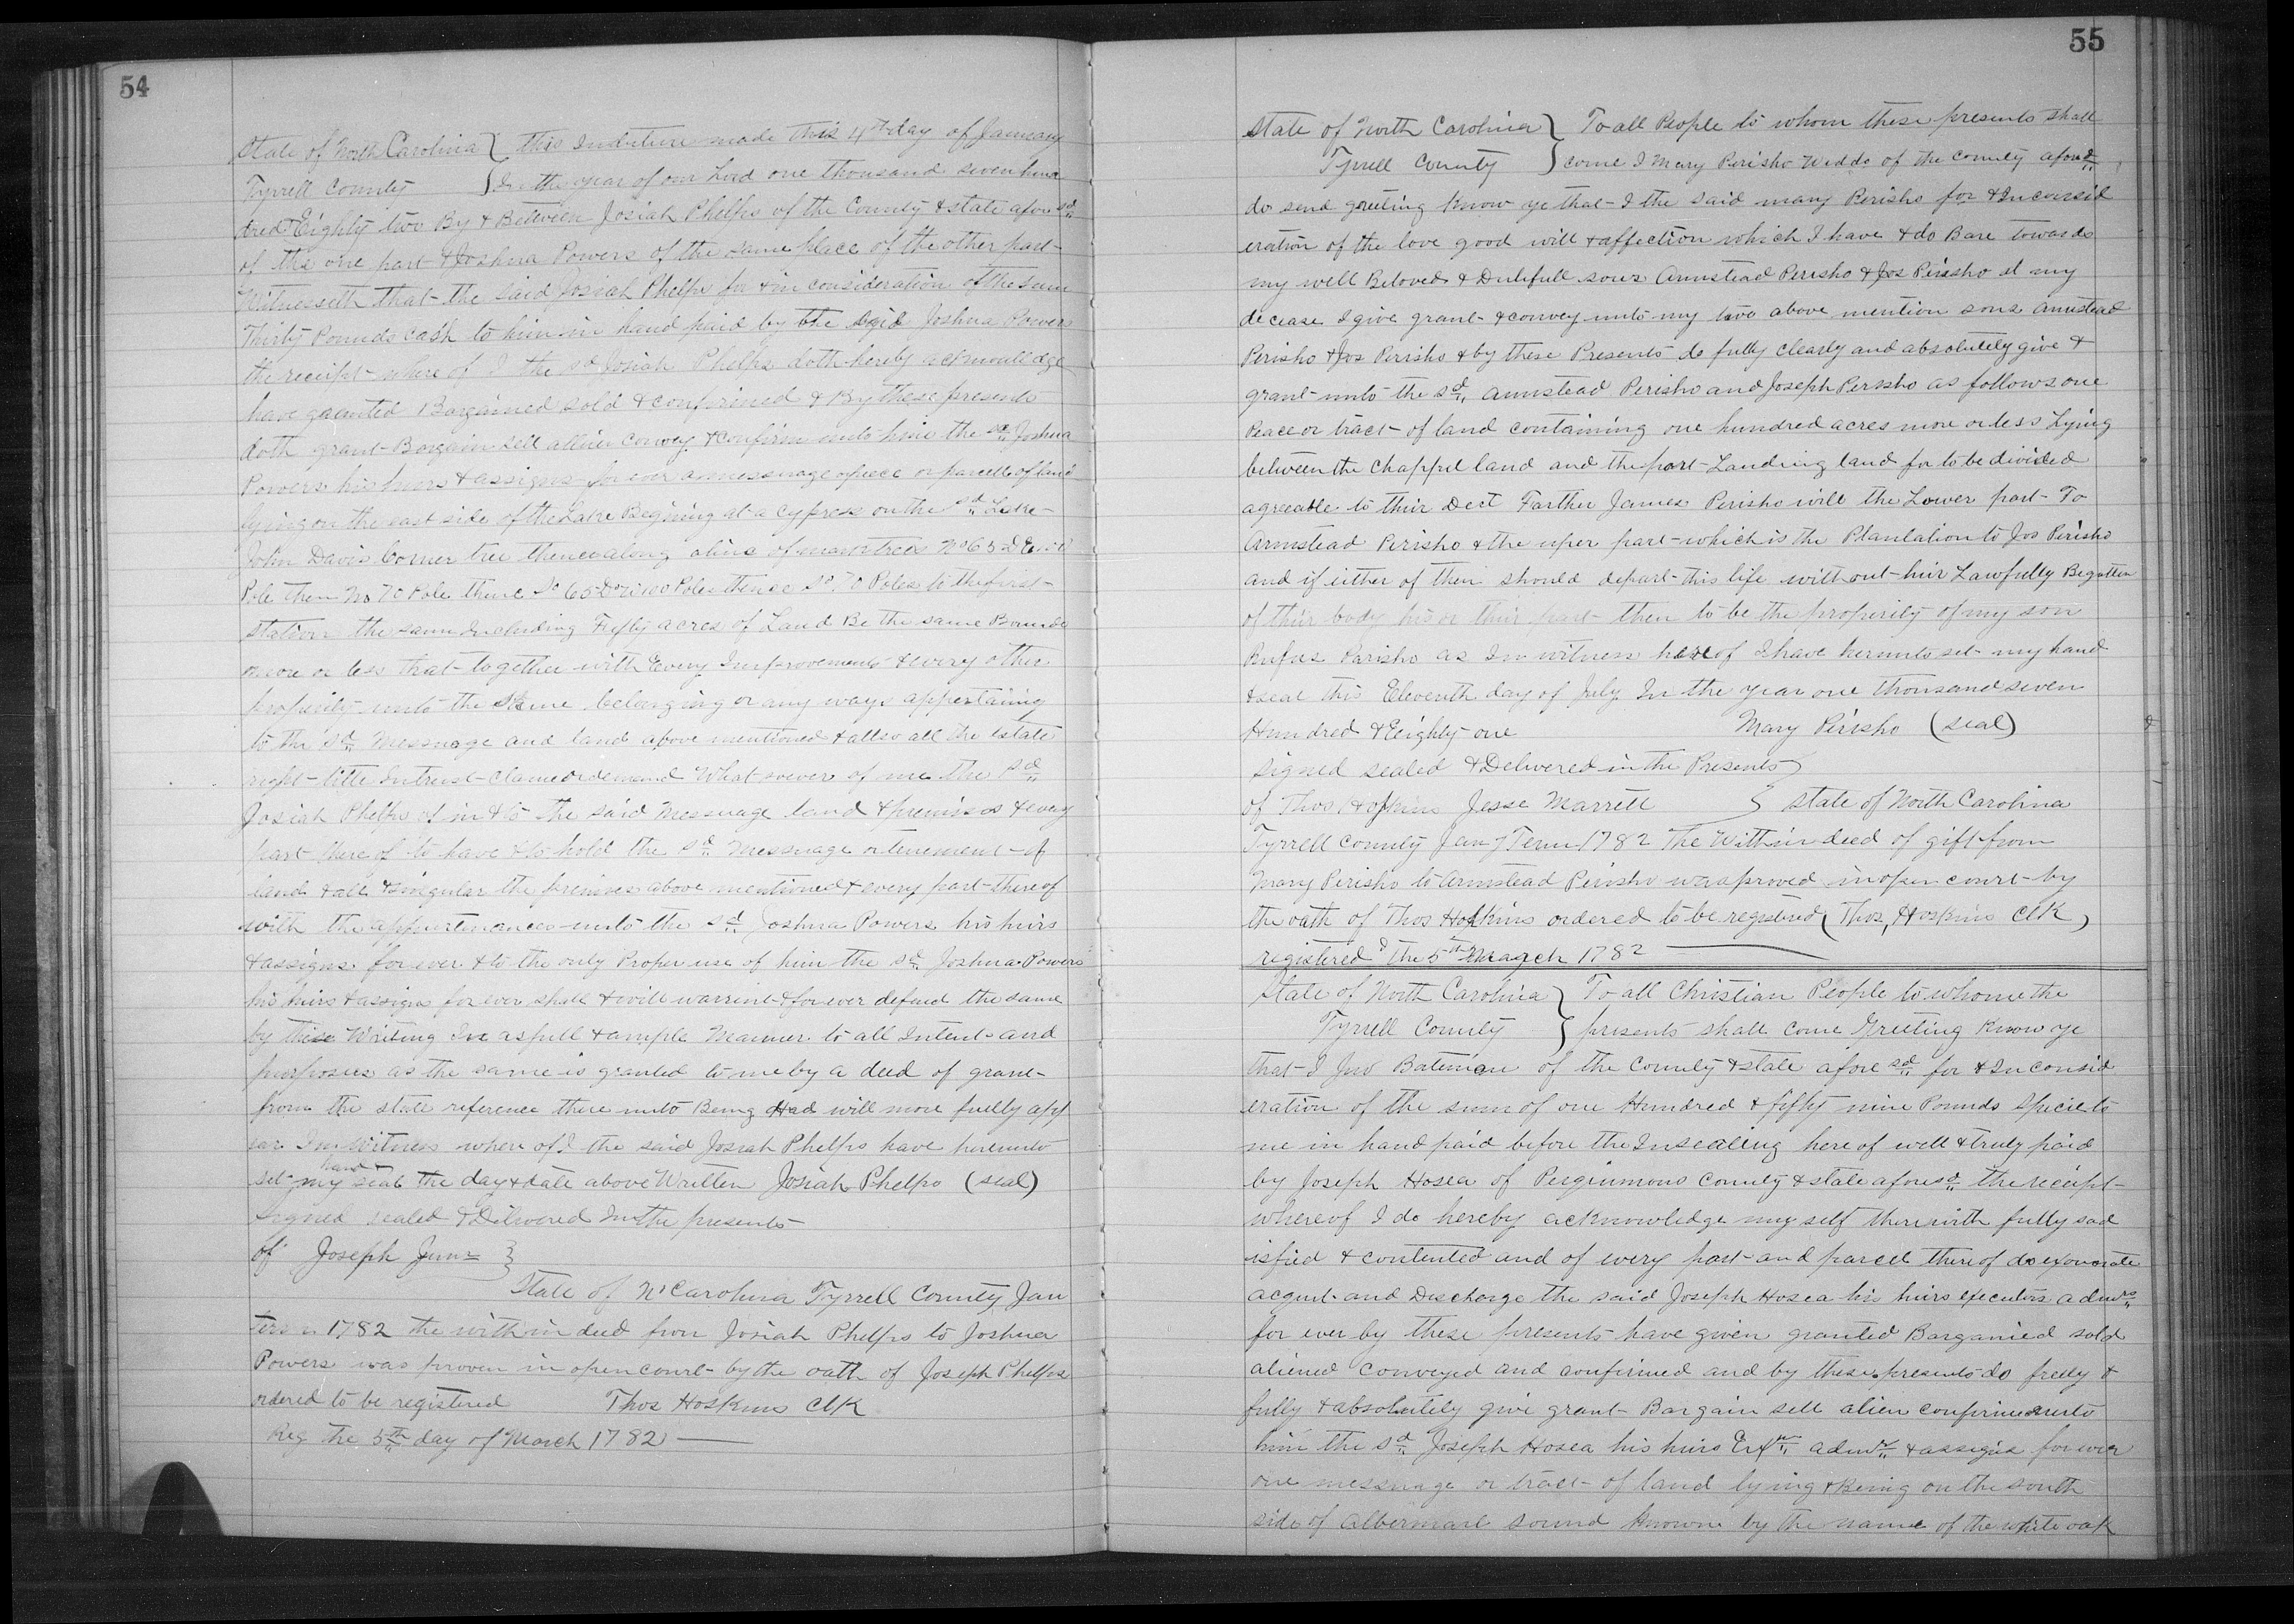 54
State of North Carolina } this Indenture made this 4th day of January
Tyrrell County } In the year of our Lord one thousand seven hun
dred Eighty two By & Between Josiah Phelps of the County & state afore sd
of the one part & Joshua Powers of the same place of the other part
Witnesseth that the said Josiah Phelps for & in consideration of the sum
Thirty Pounds cash to him in hand paid by the said Joshua Powers
the receipt where of I the sd Josiah Phelps doth hereby acknowledge
have granted Bargained sold & confirmed & By these presents
doth grant Bargain sell allien convey & confirm unto him the sd Joshua
Powers his heirs & assigns for ever a messuage or piece or parcell of land
lying on the east side of the Lake Begining at a Cypress on the sd Lake
John Davis Corner tree thence along a line of mark trees No 65 D E
Pole then No 70 Pole thence So 65 D W 100 Poles thence So 70 Poles to the first
station the same Including Fifty acres of Land Be the same Bounds
more or less that together with Every Improvements & every other
property unto the same belonging or any ways appertaining
to the sd Messuage and land above mentioned & allso all the Estate
right title Intrest clame or demand What soever of me the sd
Josiah Phelps of in & to the said Messuage land & premises & every
part there of to have & to hold the sd Messuage or tenement of
land & all & singular the premises above mentioned & every part there of
with the appurtenances unto the sd Joshua Powers his heirs
& assigns for ever & to the only Proper use of him the sd Joshua Powers
his heirs & assigns for ever shall & will warrint & for ever defend the same
by these Writing In as full & ample Manner to all Intent and
purposes as the same is granted to me by a deed of grant
from the state reference there unto Being Had will more fully app
ear In Witness where of I the said Josiah Phelps have hereunto
set my hand & seal the day & date above Written Josiah Phelps (seal)
Signed sealed & Delivered In the presents
of Joseph Junr }
State of N Carolina Tyrrell County Jan
term 1782 the with in deed from Josiah Phelps to Joshua
Powers was proven in open court by the oath of Joseph Phelps
ordered to be registered Thos Hoskins Clk
Reg the 5th day of March 1782
55
State of North Carolina } To all People to whom these presents shall
Tyrrell County } come I Mary Perisho Weddo of the County aforesd
do send greeting Know ye that I the said Mary Perisho for & In consid
eration of the love good will & affection which I have & do Bare towards
my well Beloved & Dutifull sons Armstead Perisho & Jos Perisho at my
decease I give grant & convey unto my two above mention sons Armstead
Perisho & Jos Perisho & by these Presents do fully clearly and absolutely give &
grant unto the sd Armstead Perisho and Joseph Perisho as follows one
Peace or tract of land containing one hundred acres more or less Lying
between the Chappel land and the port Landing land for to be divided
agreeable to their Dest Farther James Perisho will the Lower part To
Armstead Perisho & the uper part which is the Plantation to Jos Perisho
and if either of them should depart this life without heir Lawfully Begotten
of their body his or their part then to be the property of my son
Rufus Parisho as In witness here of I have hereunto set my hand
& seal this Eleventh day of July In the year one thousand seven
Hundred & Eighty one Mary Perisho (seal)
signed sealed & Delivered in the Presents }
of Thos Hopkins Jesse Marrett } State of North Carolina
Tyrrell County Jany Term 1782 The Within deed of gift from
Mary Perisho to Armstead Perisho was proved in open court by
the oath of Thos Hopkins ordered to be registered (Thos, Hoskins Clk)
registered the 5th March 1782
State of North Carolina } To all Christian People to whome the
Tyrrell County } presents shall come Greeting Know ye
that I Jno Bateman of the County & state afore sd for & In consid
eration of the sum of one Hundred & fifty nine Pounds Specie to
me in hand paid before the Insealing here of well & truly paid
by Joseph Hosea of Perquimons County & state aforesd the receipt
whereof I do hereby acknowledge my self therewith fully sad
isfied & contented and of every part and parcel there of do exonorate
acquit and Discharge the said Joseph Hosea his heirs executors admrs
for ever by these presents have given granted Barganied sold
aliened Conveyed and confirmed and by these presents do freely &
fully & absolutely give grant Bargain sell alien confirme unto
him the sd Joseph Hosea his heirs Exrs admrs & assigns for ever
one messuage or tract of land lying & Being on the south
side of Albermarl sound knowne by the name of the white oak